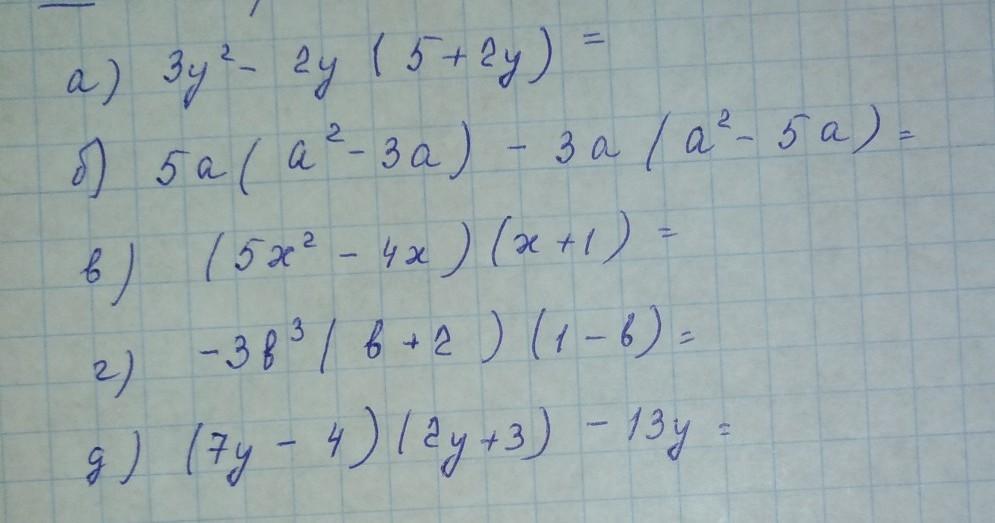 а) 3y² - 2y (5 + 2y) =
б) 5a (a² - 3a) - 3a (a² - 5a) =
в) (5x² - 4x) (x + 1) =
г) -3b³ (b + 2) (1 - b) =
д) (7y - 4) (2y + 3) - 13y =